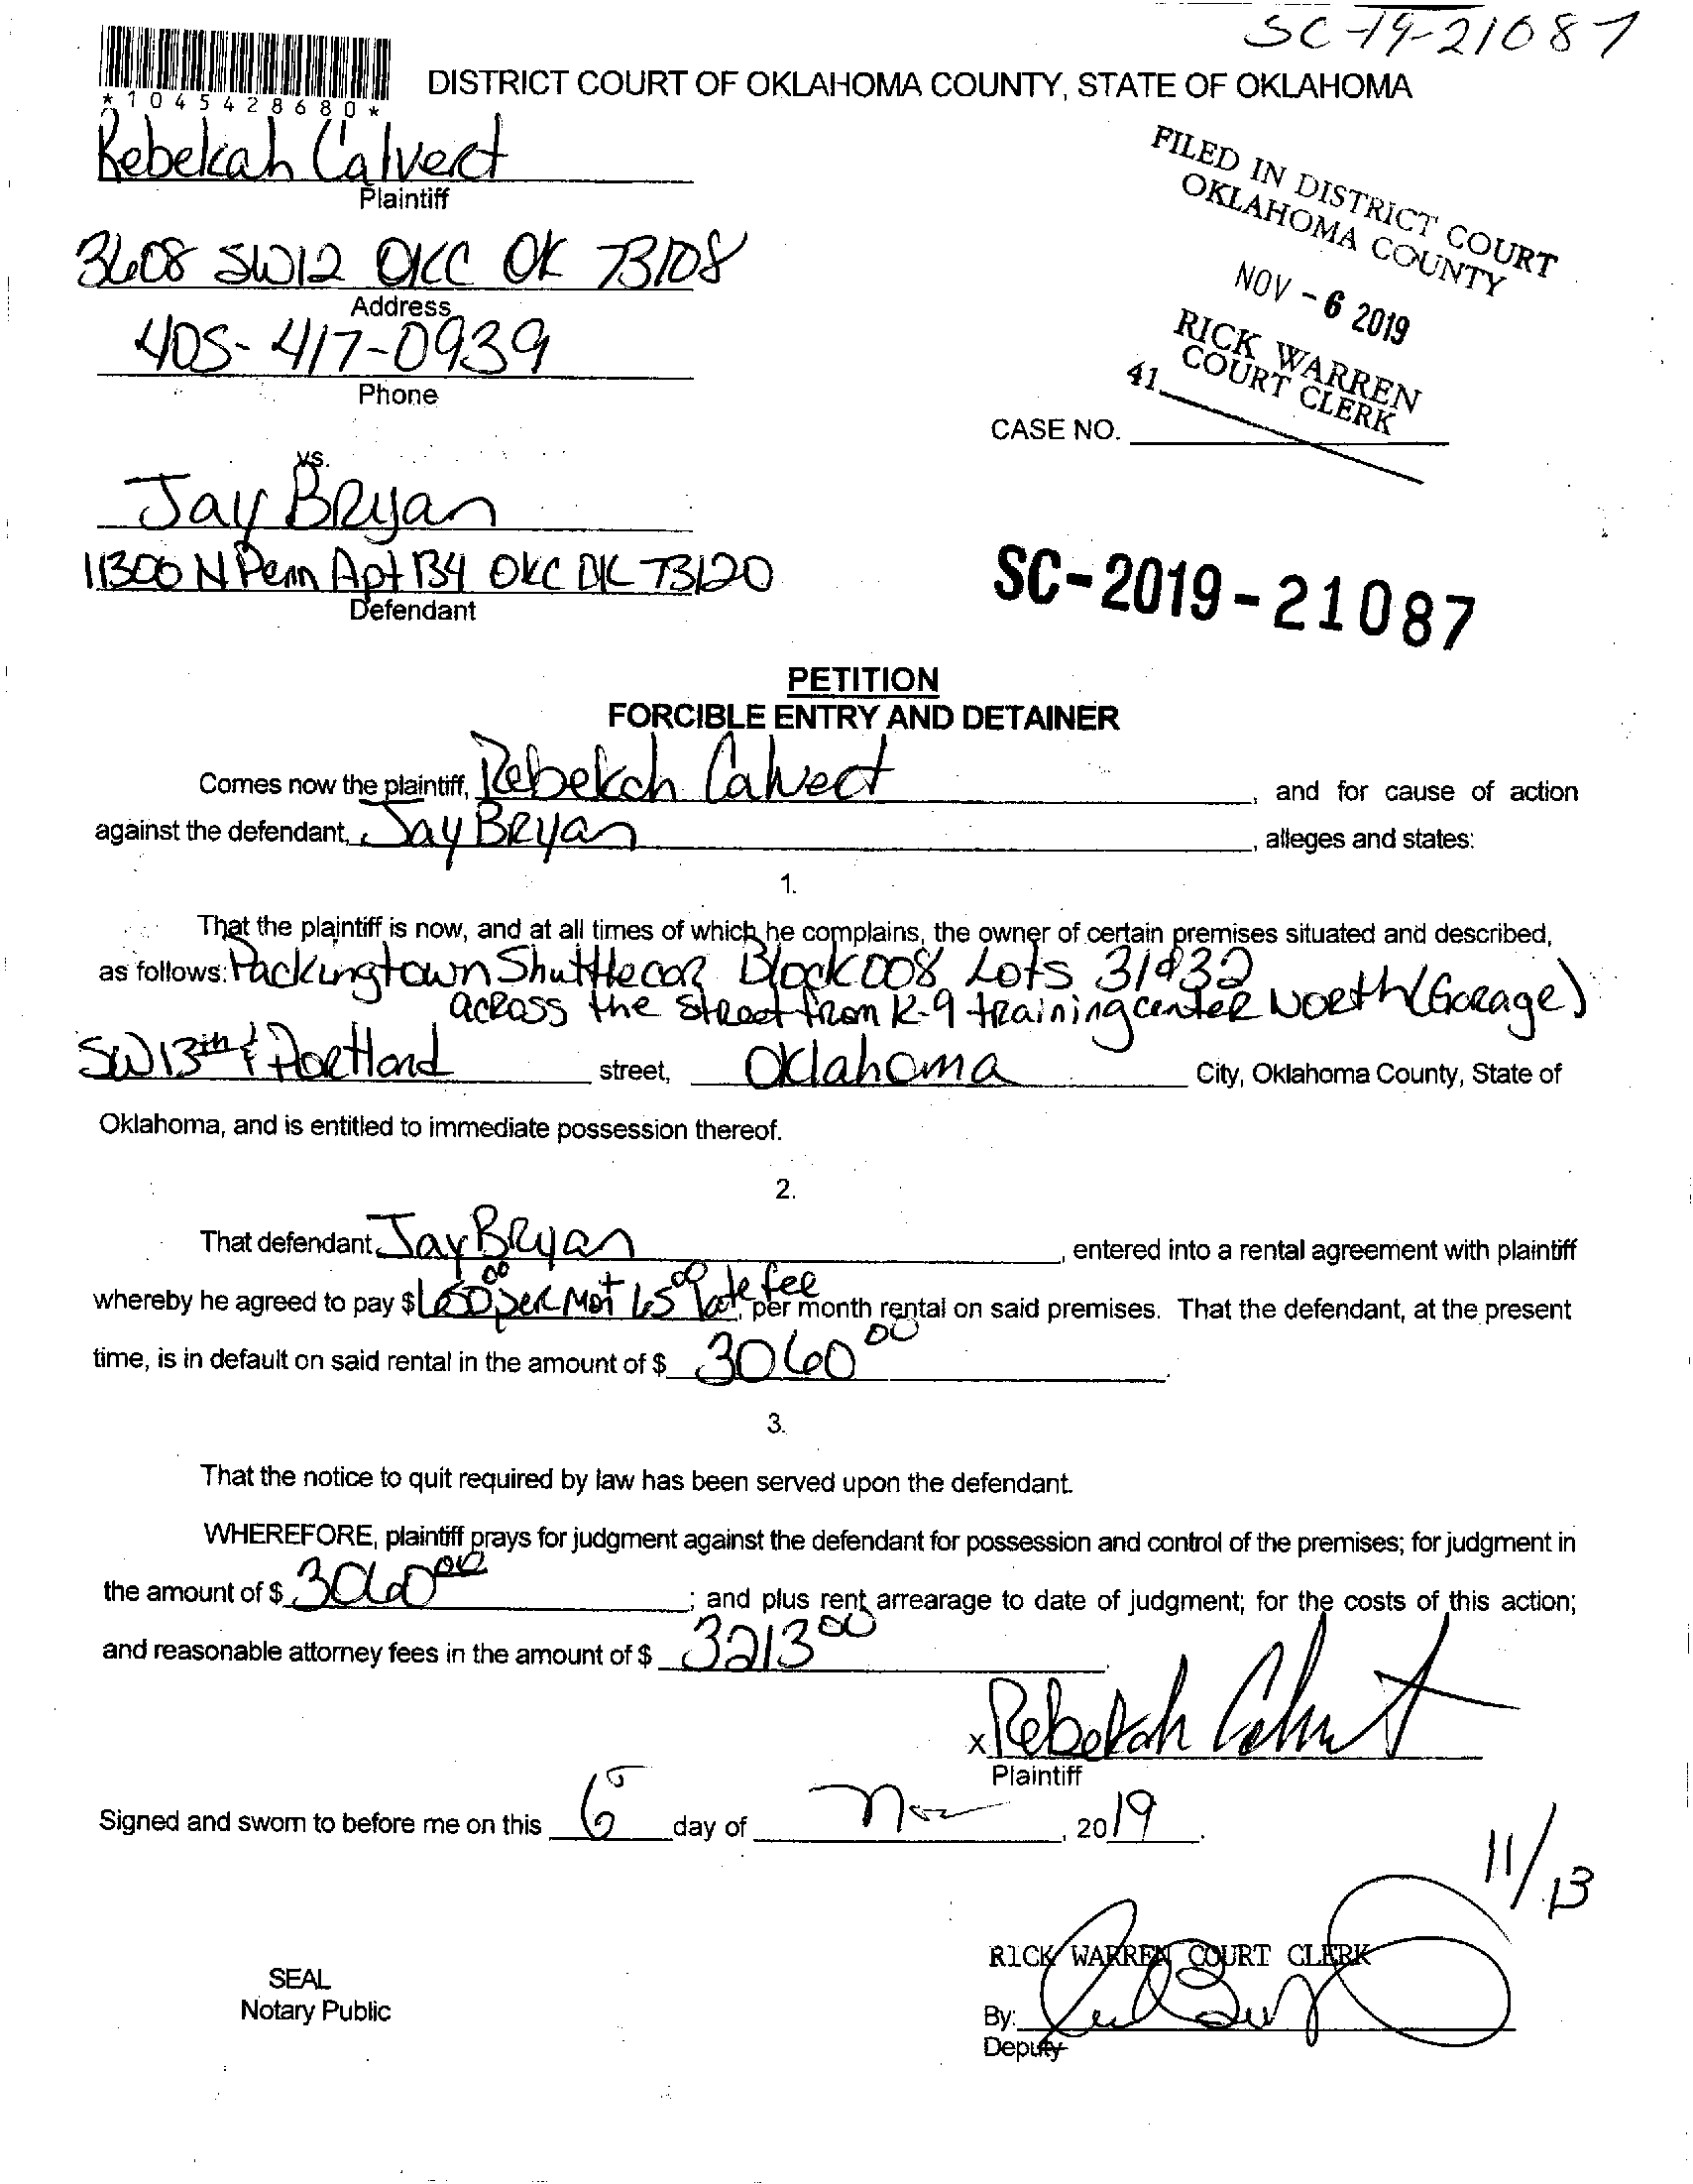 SC-19-21087
*1045428680*
DISTRICT COURT OF OKLAHOMA COUNTY, STATE OF OKLAHOMA
Rebekah Calvert
Plaintiff
FILED IN DISTRICT COURT
OKLAHOMA COUNTY
3608 SW12 OKC OK 73108
Address
NOV - 6 2019
405-417-0939
Phone
RICK WARREN
COURT CLERK
41
CASE NO.
vs.
Jay Bryan
11300 N Penn Apt 134 OKC OK 73120
Defendant
SC-2019-21087
PETITION
FORCIBLE ENTRY AND DETAINER
Comes now the plaintiff, Rebekah Calvert, and for cause of action
against the defendant, Jay Bryan, alleges and states:
1.
That the plaintiff is now, and at all times of which he complains, the owner of certain premises situated and described,
as follows: Packingtown Shuttlecar Block 008 Lots 31&32
across the street from K-9 training center North (Garage)
SW 13th & Portland street, Oklahoma City, Oklahoma County, State of
Oklahoma, and is entitled to immediate possession thereof.
2.
That defendant Jay Bryan, entered into a rental agreement with plaintiff
whereby he agreed to pay $ per mo + 65 00 late fee, per month rental on said premises. That the defendant, at the present
time, is in default on said rental in the amount of $ 3060 00.
3.
That the notice to quit required by law has been served upon the defendant.
WHEREFORE, plaintiff prays for judgment against the defendant for possession and control of the premises; for judgment in
the amount of $ 3060 00; and plus rent arrearage to date of judgment; for the costs of this action;
and reasonable attorney fees in the amount of $ 3213 00.
x Rebekah Calvert
Plaintiff
Signed and sworn to before me on this 6 day of Nov, 2019.
11/13
RICK WARREN COURT CLERK
SEAL
Notary Public
By:
Deputy